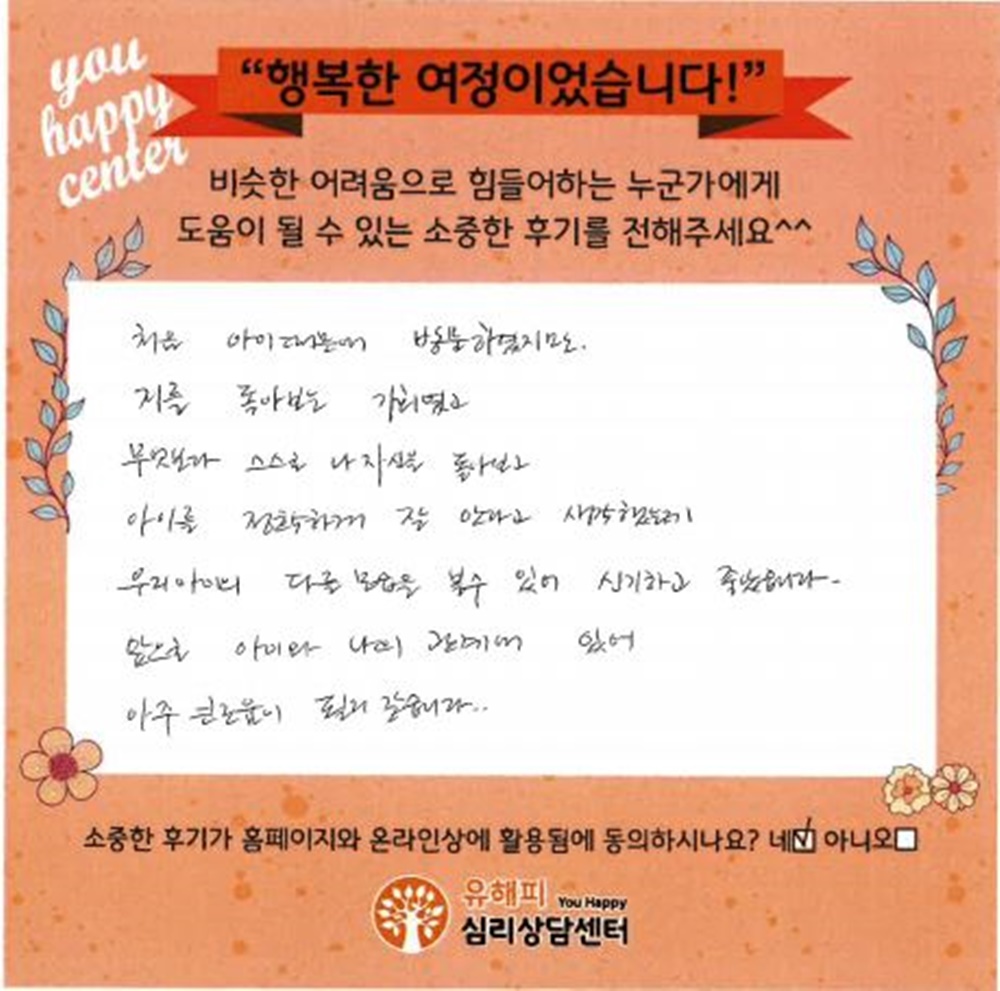 you
happy
center
“행복한 여정이었습니다!”
비슷한 어려움으로 힘들어하는 누군가에게
도움이 될 수 있는 소중한 후기를 전해주세요^^
처음 아이때문에 방문하였지만.
저를 돌아보는 기회였고
무엇보다 스스로 나 자신을 돌아보고
아이를 정확하게 잘 안다고 생각했는데
우리아이의 다른 모습을 볼수 있어 신기하고 좋았습니다.
앞으로 아이와 나의 관계에 있어
아주 큰도움이 될거 같습니다..
소중한 후기가 홈페이지와 온라인상에 활용됨에 동의하시나요? 네☑ 아니오☐
유해피 You Happy
심리상담센터